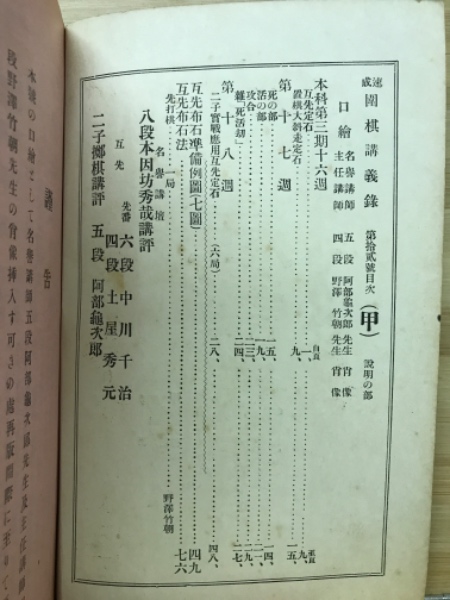 速成 圍棋講義錄 第拾貳號目次 (甲) 說明の部
口繪 名譽講師 五段 阿部龜次郎先生 肖像
主任講師 四段 野澤竹朝先生 肖像
本科第三期十六週
互先定石 自頁 一、 至頁 九、
置棋大斜走定石 九、 一五、
第十七週
死の部 一五、 一四、
活の部 一九、 二一、
攻合 二三、
雜「死活劫」 二四、 二七、
第十八週
二子實戰應用互先定石(六局) 二八、 四八、
互先布石準備例圖(七圖) 四九
互先布石法 七六
先打棋 一局 野澤竹朝
名譽講壇
八段本因坊秀哉講評
互先 先番 六段 中川千治
四段 土屋秀元
二子鄉棋講評 五段 阿部龜次郎
謹告
本號の口繪として名譽講師五段阿部龜次郎先生及主任講師
段野澤竹朝先生の肖像挿入す可きの處再版